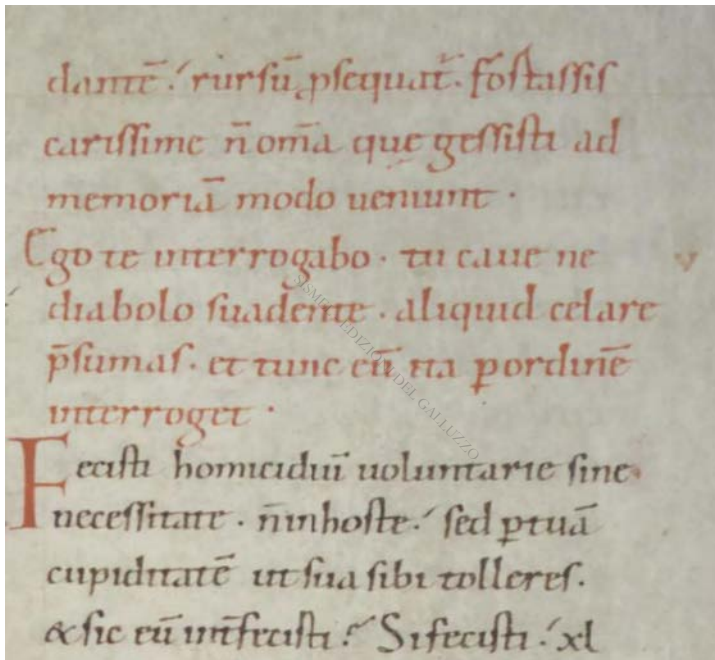 dantē. rursū psequat̄. fostassis
carissime n̄ om̄a que gessisti ad
memoriā modo ueniunt ·
Ego te interrogabo · tu caue ne
diabolo suadente · aliquid celare
p̄sumas · et tunc eū ita ꝑ ordinē
interroget ·
Fecisti homiciduī uoluntarie sine
necessitate · n̄ in hoste · sed ꝑ tuā
cupiditatē ut sua sibi tolleres ·
& sic eū int̄fecisti · Si fecisti · xl
SISMEL EDIZIONI DEL GALLUZZO